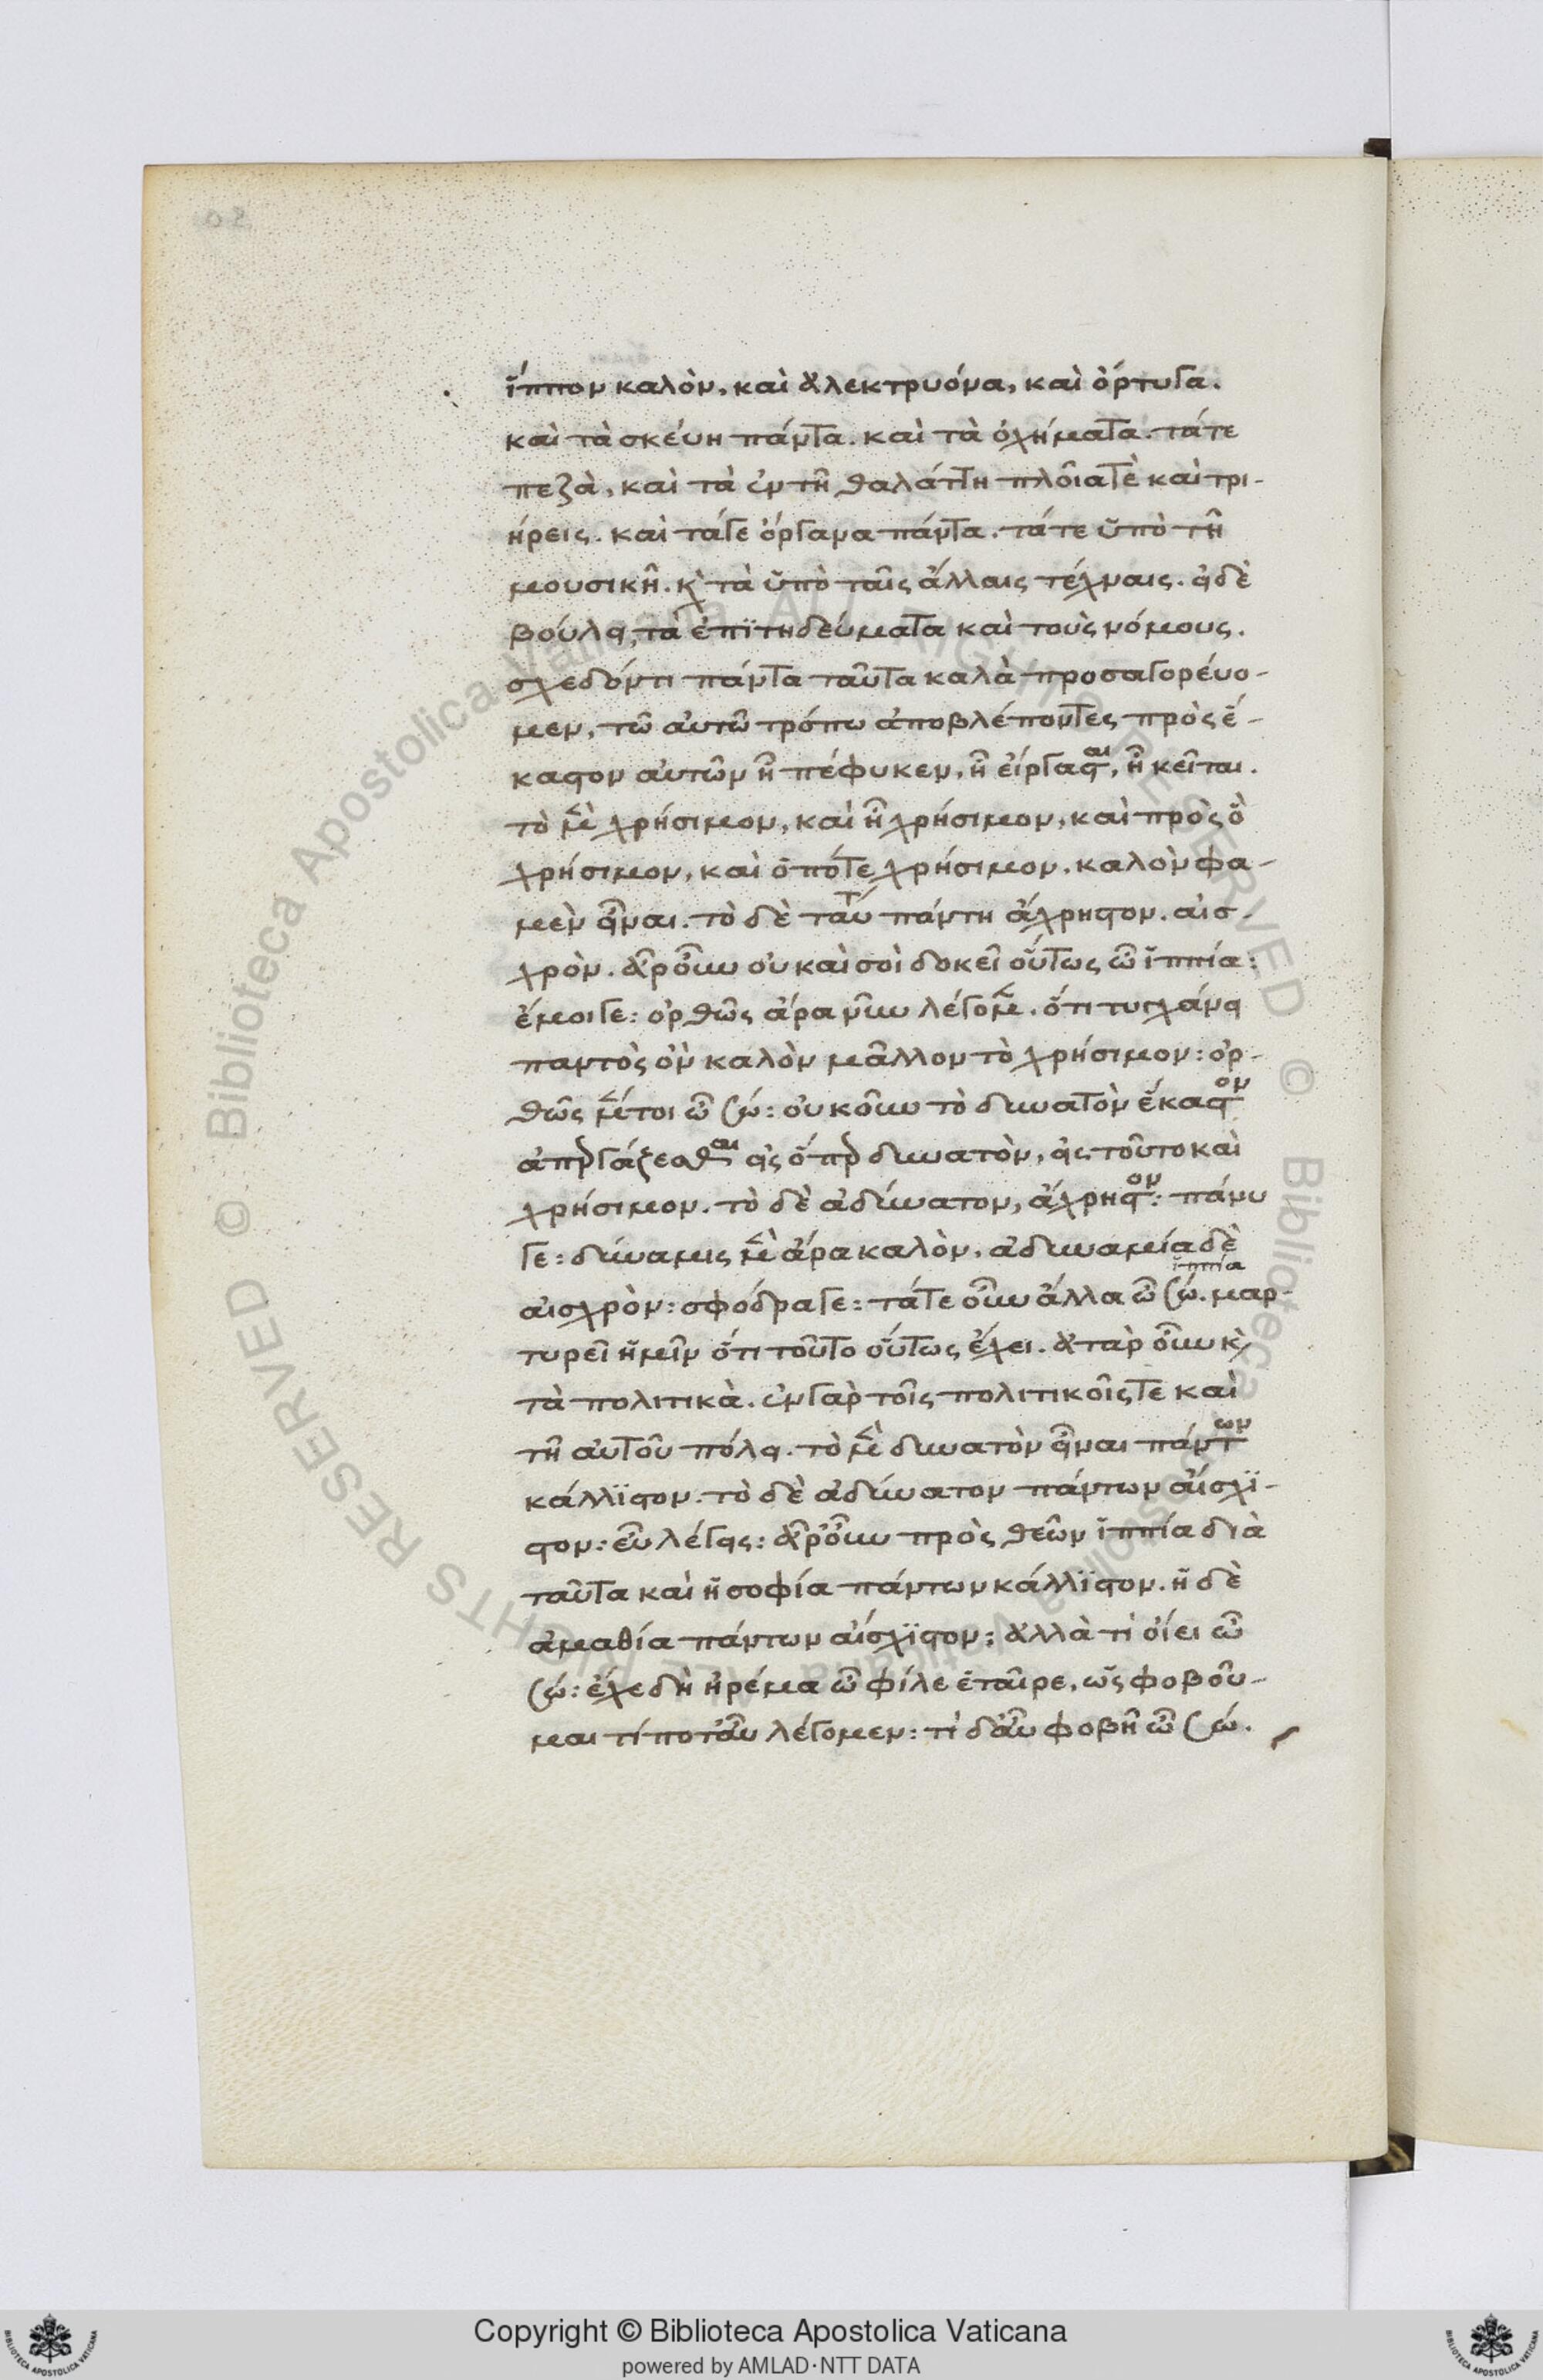 ἵππον καλὸν, καὶ ἀλεκτρυόνα, καὶ ὄρτυγα.
καὶ τὰ σκεύη πάντα. καὶ τὰ ὀχήματα. τάτε
πεζὰ, καὶ τὰ ἐν τῆ θαλάττη πλοῖατὲ καὶ τρι-
ήρεις. καὶ τάγε ὄργανα πάντα. τάτε ὑπὸ τῆ
μουσικῆ. κὶ τὰ ὑπὸ ταῖς ἄλλαις τέχναις. εἰδὲ
βούλει, τὰ ἐπϊτηδεύματα καὶ τοὺς νόμους.
σχεδόντι πάντα ταῦτα καλὰ προσαγορεύο-
μεν, τῶ αὐτῶ τρόπω ἀποβλέποντες πρὸς ἕ-
καστον αὐτῶν ἧ πέφυκεν, ἧ εἴργασται, ἧ κεῖται.
τὸ μὲν χρήσιμον, καὶ ἧ χρήσιμον, καὶ πρὸς ὃ
χρήσιμον, καὶ ὁπότε χρήσιμον. καλὸν φα-
μὲν εἶναι. τὸ δὲ ταύτ πάντη ἄχρηστον. αἰσ-
χρὸν. ἆροὖν οὐ καὶ σοὶ δοκεῖ οὕτως ὦ ἱππία:
ἔμοιγε: ὀρθῶς ἄρα νῦν λέγομεν. ὅτι τυγχάνει
παντὸς ὂν καλὸν μᾶλλον τὸ χρήσιμον: ὀρ-
θῶς μέντοι ὦ σώ: οὐκοῦν τὸ δυνατὸν ἕκαστον
ἀπεργάζεσθαι εἰς ὅπερ δυνατὸν, εἰς τοῦτο καὶ
χρήσιμον. τὸ δὲ ἀδύνατον, ἄχρηστον: πάνυ
γε: δύναμις μὲν ἄρα καλὸν, ἀδυναμία δὲ
αἰσχρὸν: σφόδρα γε: τάτε οὖν ἄλλα ὦ σώ. ἱππία μαρ-
τυρεῖ ἡμῖν ὅτι τοῦτο οὕτως ἔχει. ἀτὰρ οὖν κὶ
τὰ πολιτικὰ. ἐν γὰρ τοῖς πολιτικοῖς τε καὶ
τῆ αὐτοῦ πόλει. τὸ μὲν δυνατὸν εἶναι πάντων
κάλλϊστον. τὸ δὲ ἀδύνατον πάντων αἴσχϊ-
στον: εὖ λέγεις: ἆροὖν πρὸς θεῶν ἱππία διὰ
ταῦτα καὶ ἡ σοφία πάντων κάλλϊστον. ἡ δὲ
ἀμαθία πάντων αἴσχϊστον; ἀλλὰ τί οἴει ὦ
σώ: ἔχε δὴ ἠρέμα ὦ φίλε ἑταῖρε, ὡς φοβοῦ-
μαι τί ποτ᾽αὖ λέγομεν: τί δ᾽αὖ φοβῆ ὦ σώ.
Copyright © Biblioteca Apostolica Vaticana
powered by AMLAD·NTT DATA